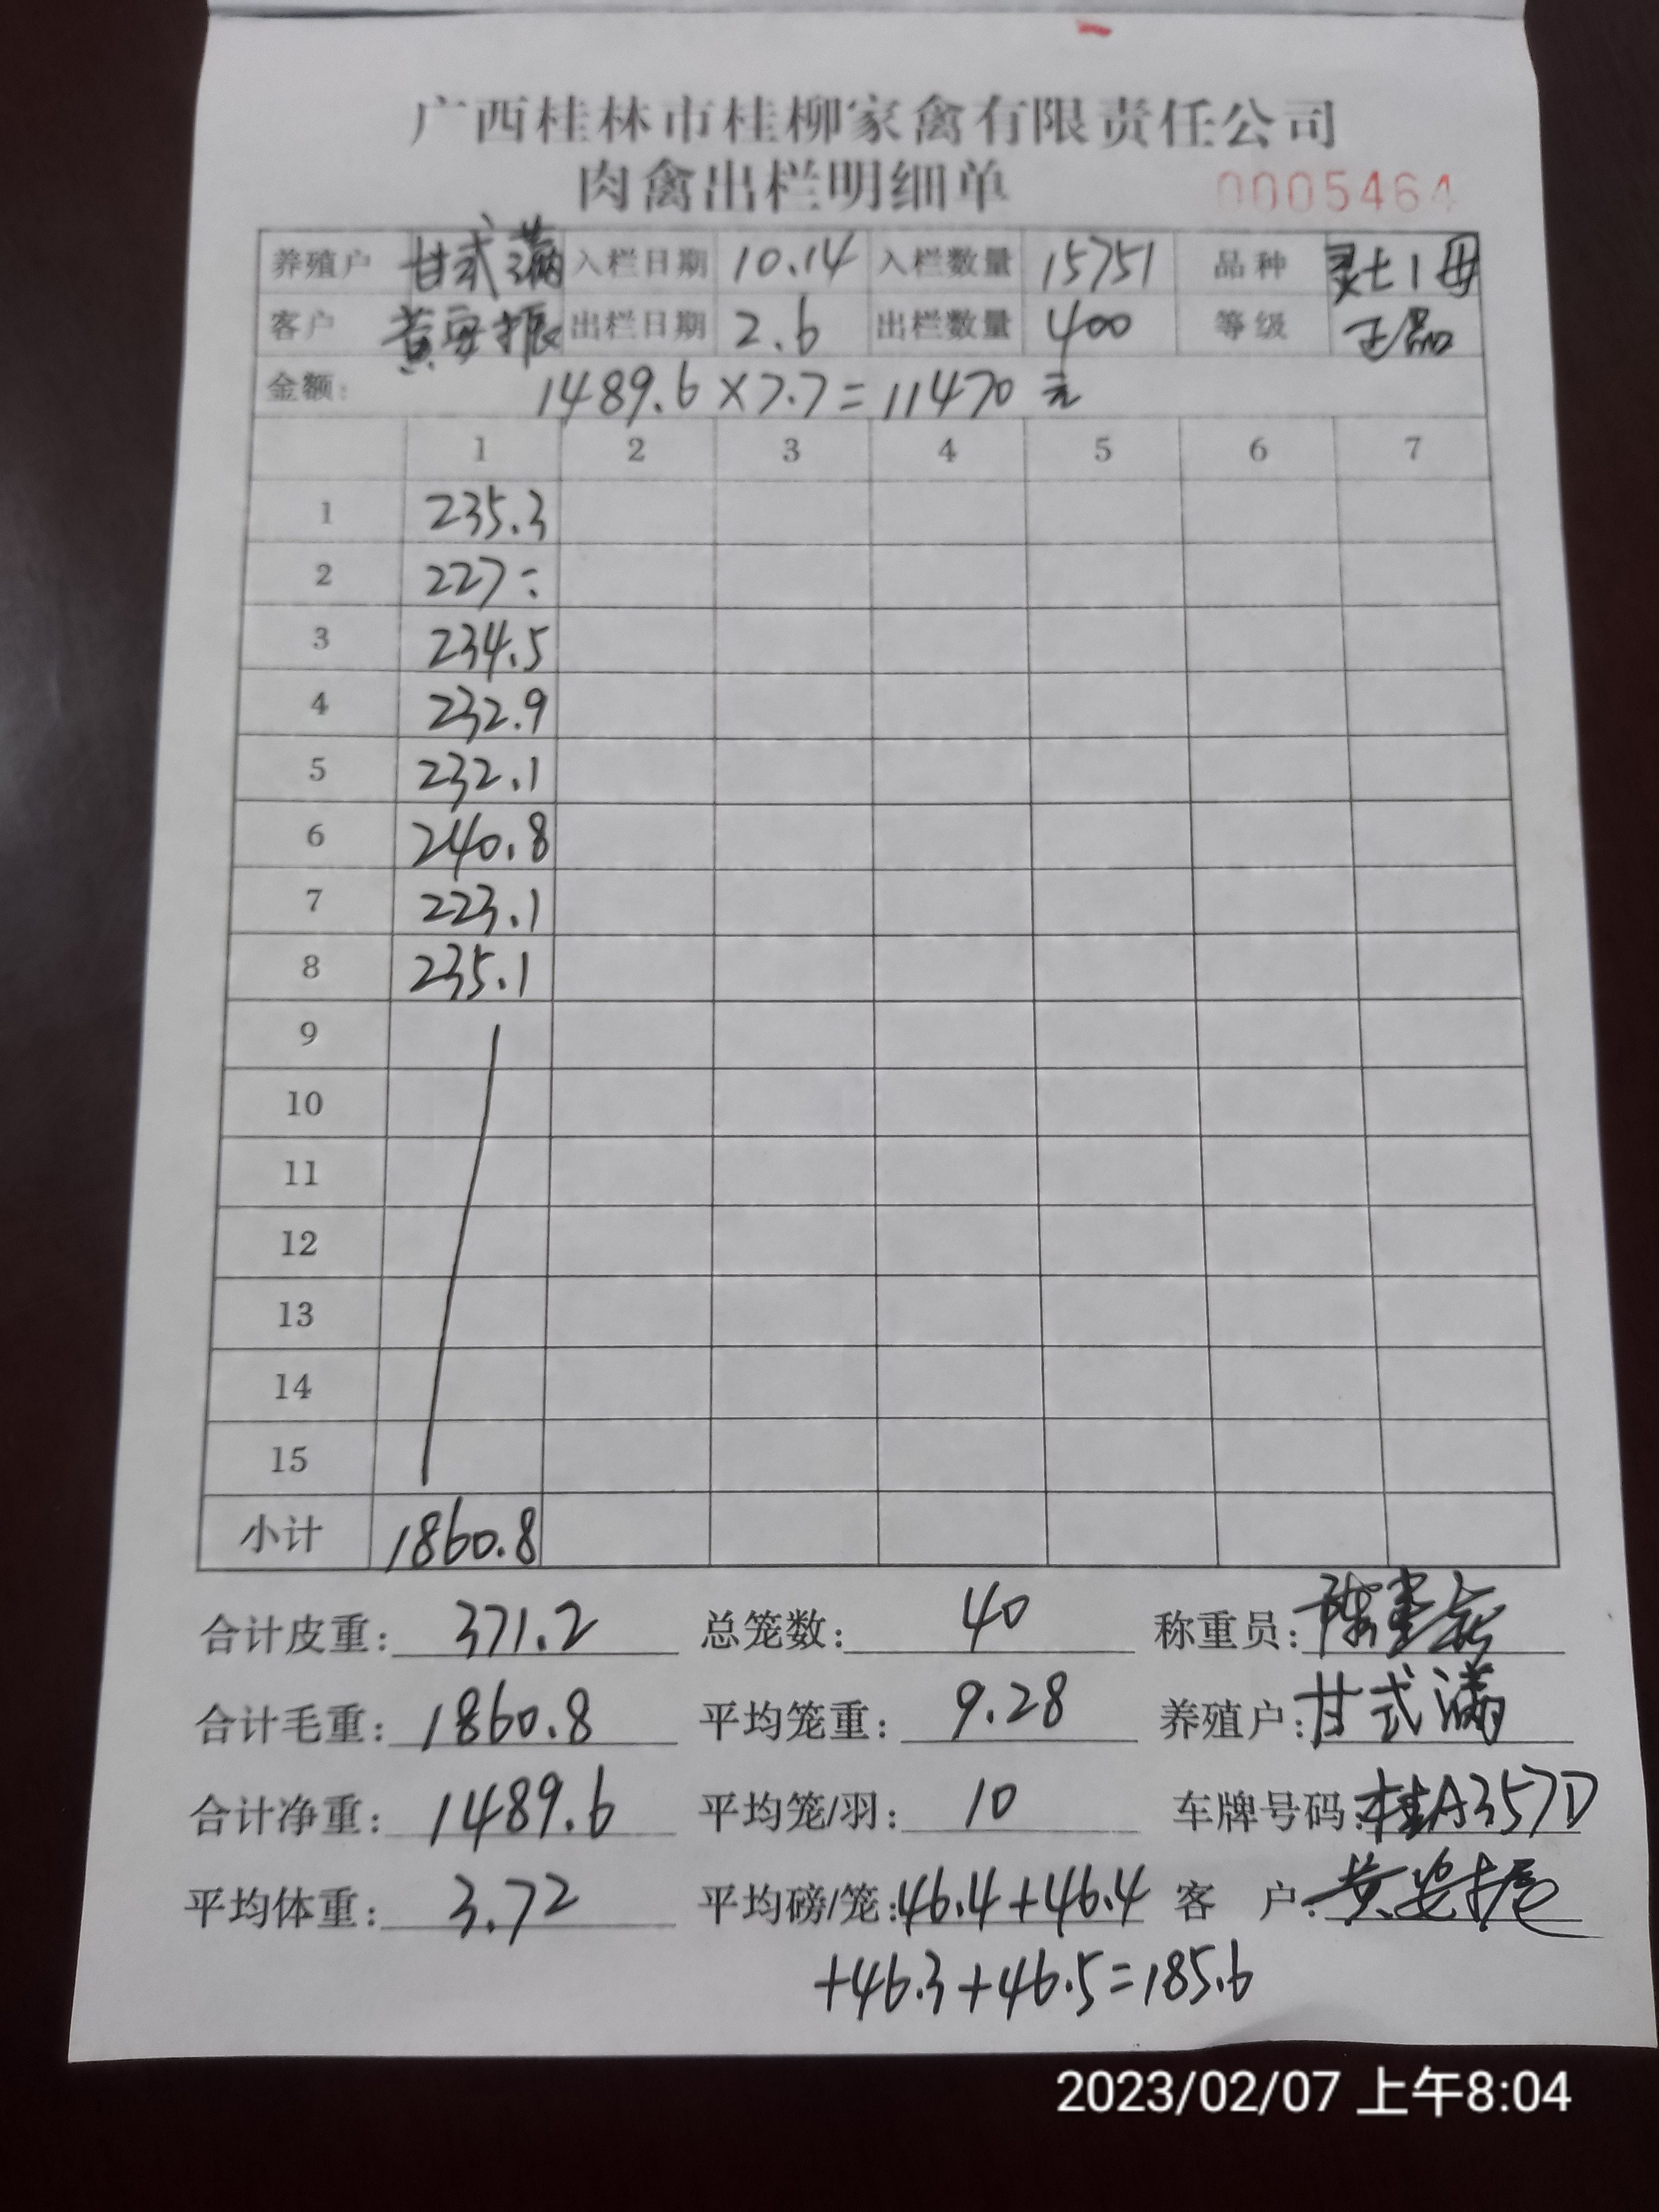 广西桂林市桂柳家禽有限责任公司
肉禽出栏明细单 0005464
养殖户 甘式满 入栏日期 10.14 入栏数量 15751 品种 灵七1母
客户 黄安振 出栏日期 2.6 出栏数量 400 等级 正品
金额: 1489.6×7.7=11470 元
1 2 3 4 5 6 7
1 235.3
2 227:
3 234.5
4 232.9
5 232.1
6 240.8
7 223.1
8 235.1
9
10
11
12
13
14
15
小计 1860.8
合计皮重: 371.2 总笼数: 40 称重员:
合计毛重: 1860.8 平均笼重: 9.28 养殖户: 甘式满
合计净重: 1489.6 平均笼/羽: 10 车牌号码: 桂A357D
平均体重: 3.72 平均磅/笼: 46.4+46.4 客 户: 黄安振
+46.3+46.5=185.6
2023/02/07 上午8:04